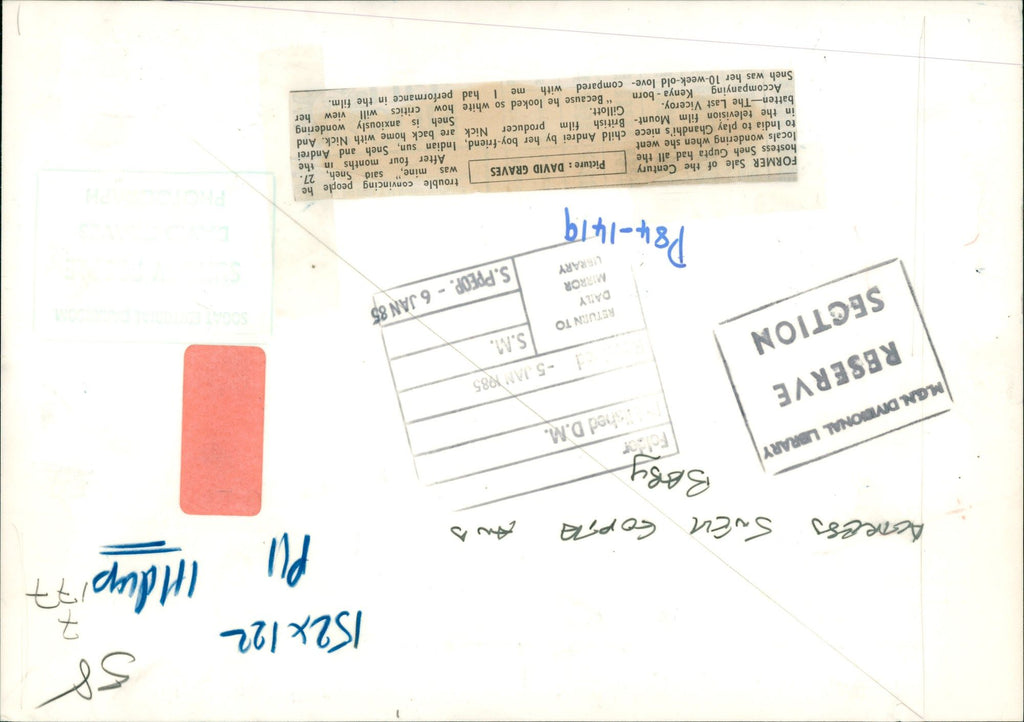 58
7
177
152x122
P11
ACTRESS SNEH GUPTA AND
BABY
M.G.N. DIVISIONAL LIBRARY
RESERVE
SECTION
Folder
Published D.M.
-5 JAN 1985
S.M.
S.PEOP. - 6 JAN 85
RETURN TO
DAILY
MIRROR
LIBRARY
PHOTOGRAPH
P84-1419
Picture : DAVID GRAVES
FORMER Sale of the Century
hostess Sneh Gupta had all the
locals wondering when she went
to India to play Ghandhi's niece
in the television film Mount-
batten—The Last Viceroy.
Accompanying Kenya-born
Sneh was her 10-week-old love-
child Andrei by her boy-friend,
British film producer Nick
Gillott.
"Because he looked so white
compared with me I had
trouble convincing people he
was mine," said Sneh, 27.
After four months in the
Indian sun, Sneh and Andrei
are back home with Nick. And
Sneh is anxiously wondering
how critics will view her
performance in the film.